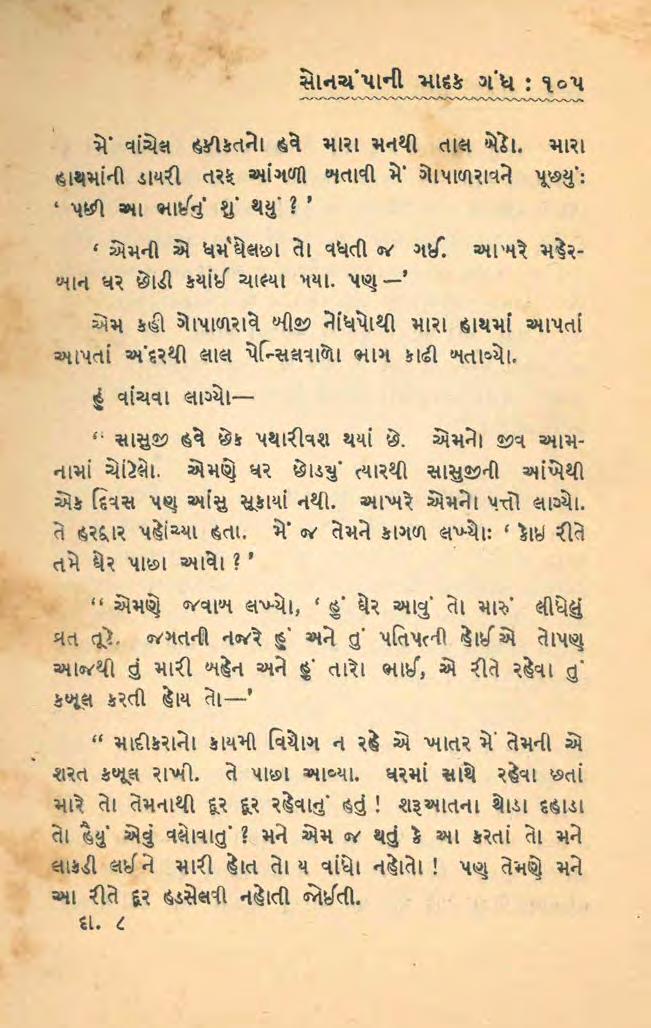 સોનચંપાની માદક ગંધ : ૧૦૫
મેં વાંચેલ હકીકતનો હવે મારા મનથી તાલ બેઠો. મારા
હાથમાંની ડાયરી તરફ આંગળી બતાવી મેં ગોપાળરાવને પૂછ્યું:
‘ પછી આ ભાઈનું શું થયું ? ’
‘ એમની એ ધર્મઘેલછા તો વધતી જ ગઈ. આખરે મહેર-
બાન ઘર છોડી કયાંઈ ચાલ્યા ગયા. પણ —’
એમ કહી ગોપાળરાવે બીજી નોંધપોથી મારા હાથમાં આપતાં
આપતાં અંદરથી લાલ પેન્સિલવાળો ભાગ કાઢી બતાવ્યો.
હું વાંચવા લાગ્યો—
“ સાસુજી હવે છેક પથારીવશ થયાં છે. એમનો જીવ આમ-
નામાં ચોંટેલો. એમણે ઘર છોડયું ત્યારથી સાસુજીની આંખેથી
એક દિવસ પણ આંસુ સૂકાયાં નથી. આખરે એમનો પત્તો લાગ્યો.
તે હરદ્વાર પહોંચ્યા હતા. મેં જ તેમને કાગળ લખ્યો: ‘ કોઇ રીતે
તમે ઘેર પાછા આવો ? ’
“ એમણે જવાબ લખ્યો, ‘ હું ઘેર આવું તો મારું લીધેલું
વ્રત તૂટે. જગતની નજરે હું અને તું પતિપત્ની હોઈએ તોપણ
આજથી તું મારી બહેન અને હું તારો ભાઈ, એ રીતે રહેવા તું
કબૂલ કરતી હોય તો—’
“ માદીકરાનો કાયમી વિયોગ ન રહે એ ખાતર મેં તેમની એ
શરત કબૂલ રાખી. તે પાછા આવ્યા. ઘરમાં સાથે રહેવા છતાં
મારે તો તેમનાથી દૂર દૂર રહેવાનું હતું ! શરૂઆતના થોડા દહાડા
તો હૈયું એવું વલોવાતું ? મને એમ જ થતું કે આ કરતાં તો મને
લાકડી લઈને મારી હોત તો ય વાંધો નહોતો ! પણ તેમણે મને
આ રીતે દૂર હડસેલવી નહોતી જોઈતી.
દા. ૮